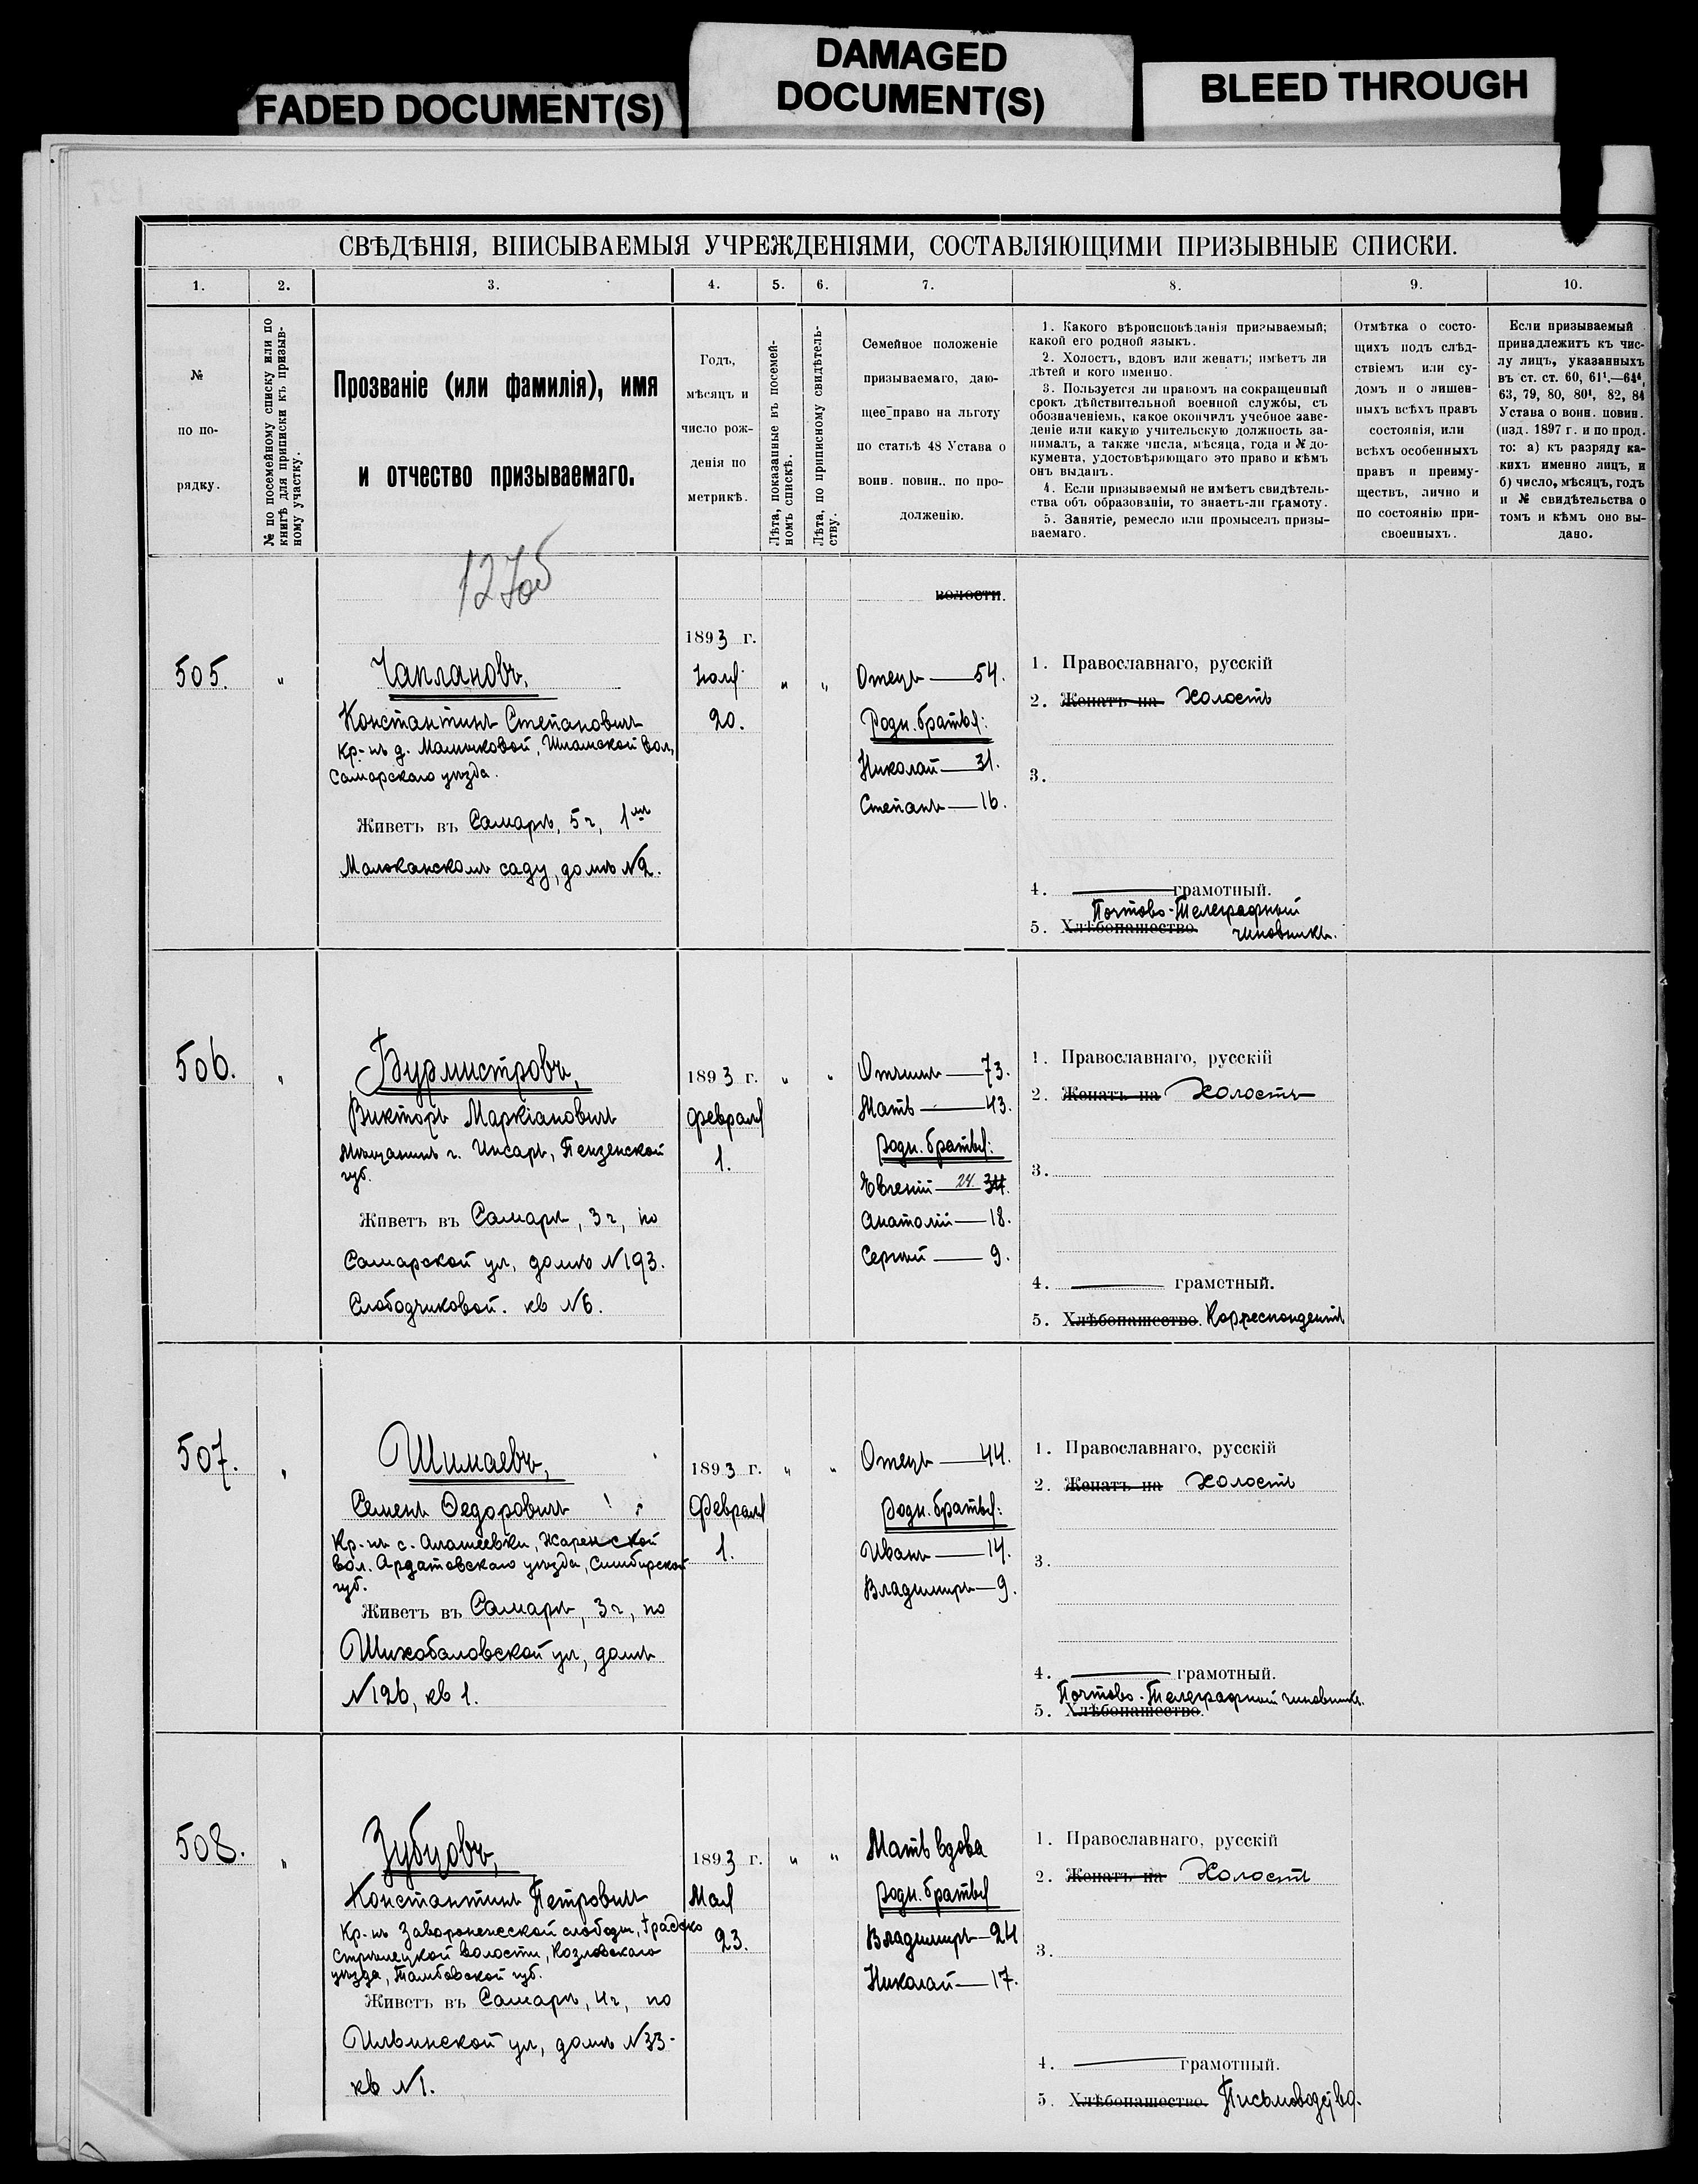 FADED DOCUMENT(S)
DAMAGED
DOCUMENT(S)
BLEED THROUGH
СВѢДѢНІЯ, ВПИСЫВАЕМЫЯ УЧРЕЖДЕНІЯМИ, СОСТАВЛЯЮЩИМИ ПРИЗЫВНЫЕ СПИСКИ.
1. 2. 3. 4. 5. 6. 7. 8. 9. 10.
№
по по-
рядку.
№ по посемейному списку или по
книгѣ для приписки къ призыв-
ному участку.
Прозваніе (или фамилія), имя
и отчество призываемаго.
Годъ,
мѣсяцъ и
число рож-
денія по
метрикѣ.
Лѣта, показанныя въ посемей-
номъ спискѣ.
Лѣта, по приписному свидѣтель-
ству.
Семейное положеніе
призываемаго, даю-
щее право на льготу
по статьѣ 48 Устава о
воин. повин., по про-
долженію.
1. Какого вѣроисповѣданія призываемый;
какой его родной языкъ.
2. Холостъ, вдовъ или женатъ; имѣетъ ли
дѣтей и кого именно.
3. Пользуется ли правомъ на сокращенный
срокъ дѣйствительной военной службы, съ
обозначеніемъ, какое окончилъ учебное заве-
деніе или какую учительскую должность за-
нималъ, а также числа, мѣсяца, года и № до-
кумента, удостовѣряющаго это право и кѣмъ
онъ выданъ.
4. Если призываемый не имѣетъ свидѣтель-
ства объ образованіи, то знаетъ-ли грамоту.
5. Занятіе, ремесло или промыселъ призы-
ваемаго.
Отмѣтка о состо-
щихъ подъ слѣд-
ствіемъ или су-
домъ и о лишен-
ныхъ всѣхъ правъ
состоянія, или
всѣхъ особенныхъ
правъ и преиму-
ществъ, лично и
по состоянію при-
своенныхъ.
Если призываемый
принадлежитъ къ чис-
лу лицъ, указанныхъ
въ ст. ст. 60, 61¹.—64⁴,
63, 79, 80, 80¹, 82, 84
Устава о воин. повин.
(изд. 1897 г. и по прод.
то: а) къ разряду ка-
кихъ именно лицъ, и
б) число, мѣсяцъ, годъ
и № свидѣтельства о
томъ и кѣмъ оно вы-
дано.
волости.
505.
Чаплановъ,
Константинъ Степановичъ
Кр-нъ д.
Самарскаго уѣзда.
Живетъ въ Самарѣ, 5 ч, 1мъ
Молоканскомъ саду, домъ №2.
1893 г.
Іюля
20.
Отецъ — 54.
Родн. братья:
Николай — 31.
Степанъ — 16.
1. Православнаго, русскій
2. Женатъ на Холостъ
3.
4. грамотный.
Почтово-Телеграфный
5. Хлѣбопашество чиновникъ.
506.
Бурмистровъ,
Викторъ Маркіановичъ
Мѣщанинъ г. Инсара, Пензенской
губ.
Живетъ въ Самарѣ, 3 ч, по
Самарской ул, домъ №193.
Слободчиковой. кв №6.
1893 г.
Февраля
1.
Отчимъ — 73.
Мать — 43.
Родн. братья:
Евгеній — 24. 34.
Анатолій — 18.
Сергѣй — 9.
1. Православнаго, русскій
2. Женатъ на Холостъ
3.
4. грамотный.
5. Хлѣбопашество. Корреспондентъ
507.
Шимаевъ,
Семенъ Федоровичъ
Кр-нъ с. Алашеевки, Жаренской
вол. Ардатовскаго уѣзда, Симбирской
губ.
Живетъ въ Самарѣ, 3 ч, по
Шихобаловской ул, домъ
№126, кв 1.
1893 г.
Февраля
1.
Отецъ — 44.
Родн. братья:
Иванъ — 14.
Владимиръ — 9.
1. Православнаго, русскій
2. Женатъ на Холостъ
3.
4. грамотный.
Почтово-Телеграфный чиновникъ.
5. Хлѣбопашество.
508.
Зубцовъ,
Константинъ Петровичъ
Кр-нъ Заворонежской слободы, Градско
Стрѣлецкой волости, Козловскаго
уѣзда, Тамбовской губ.
Живетъ въ Самарѣ, 4 ч, по
Ильинской ул, домъ №33-
кв №1.
1893 г.
Мая
23.
Мать вдова
Родн. братья
Владимиръ — 24
Николай — 17.
1. Православнаго, русскій
2. Женатъ на Холостъ
3.
4. грамотный.
5. Хлѣбопашество. Письмоводство.